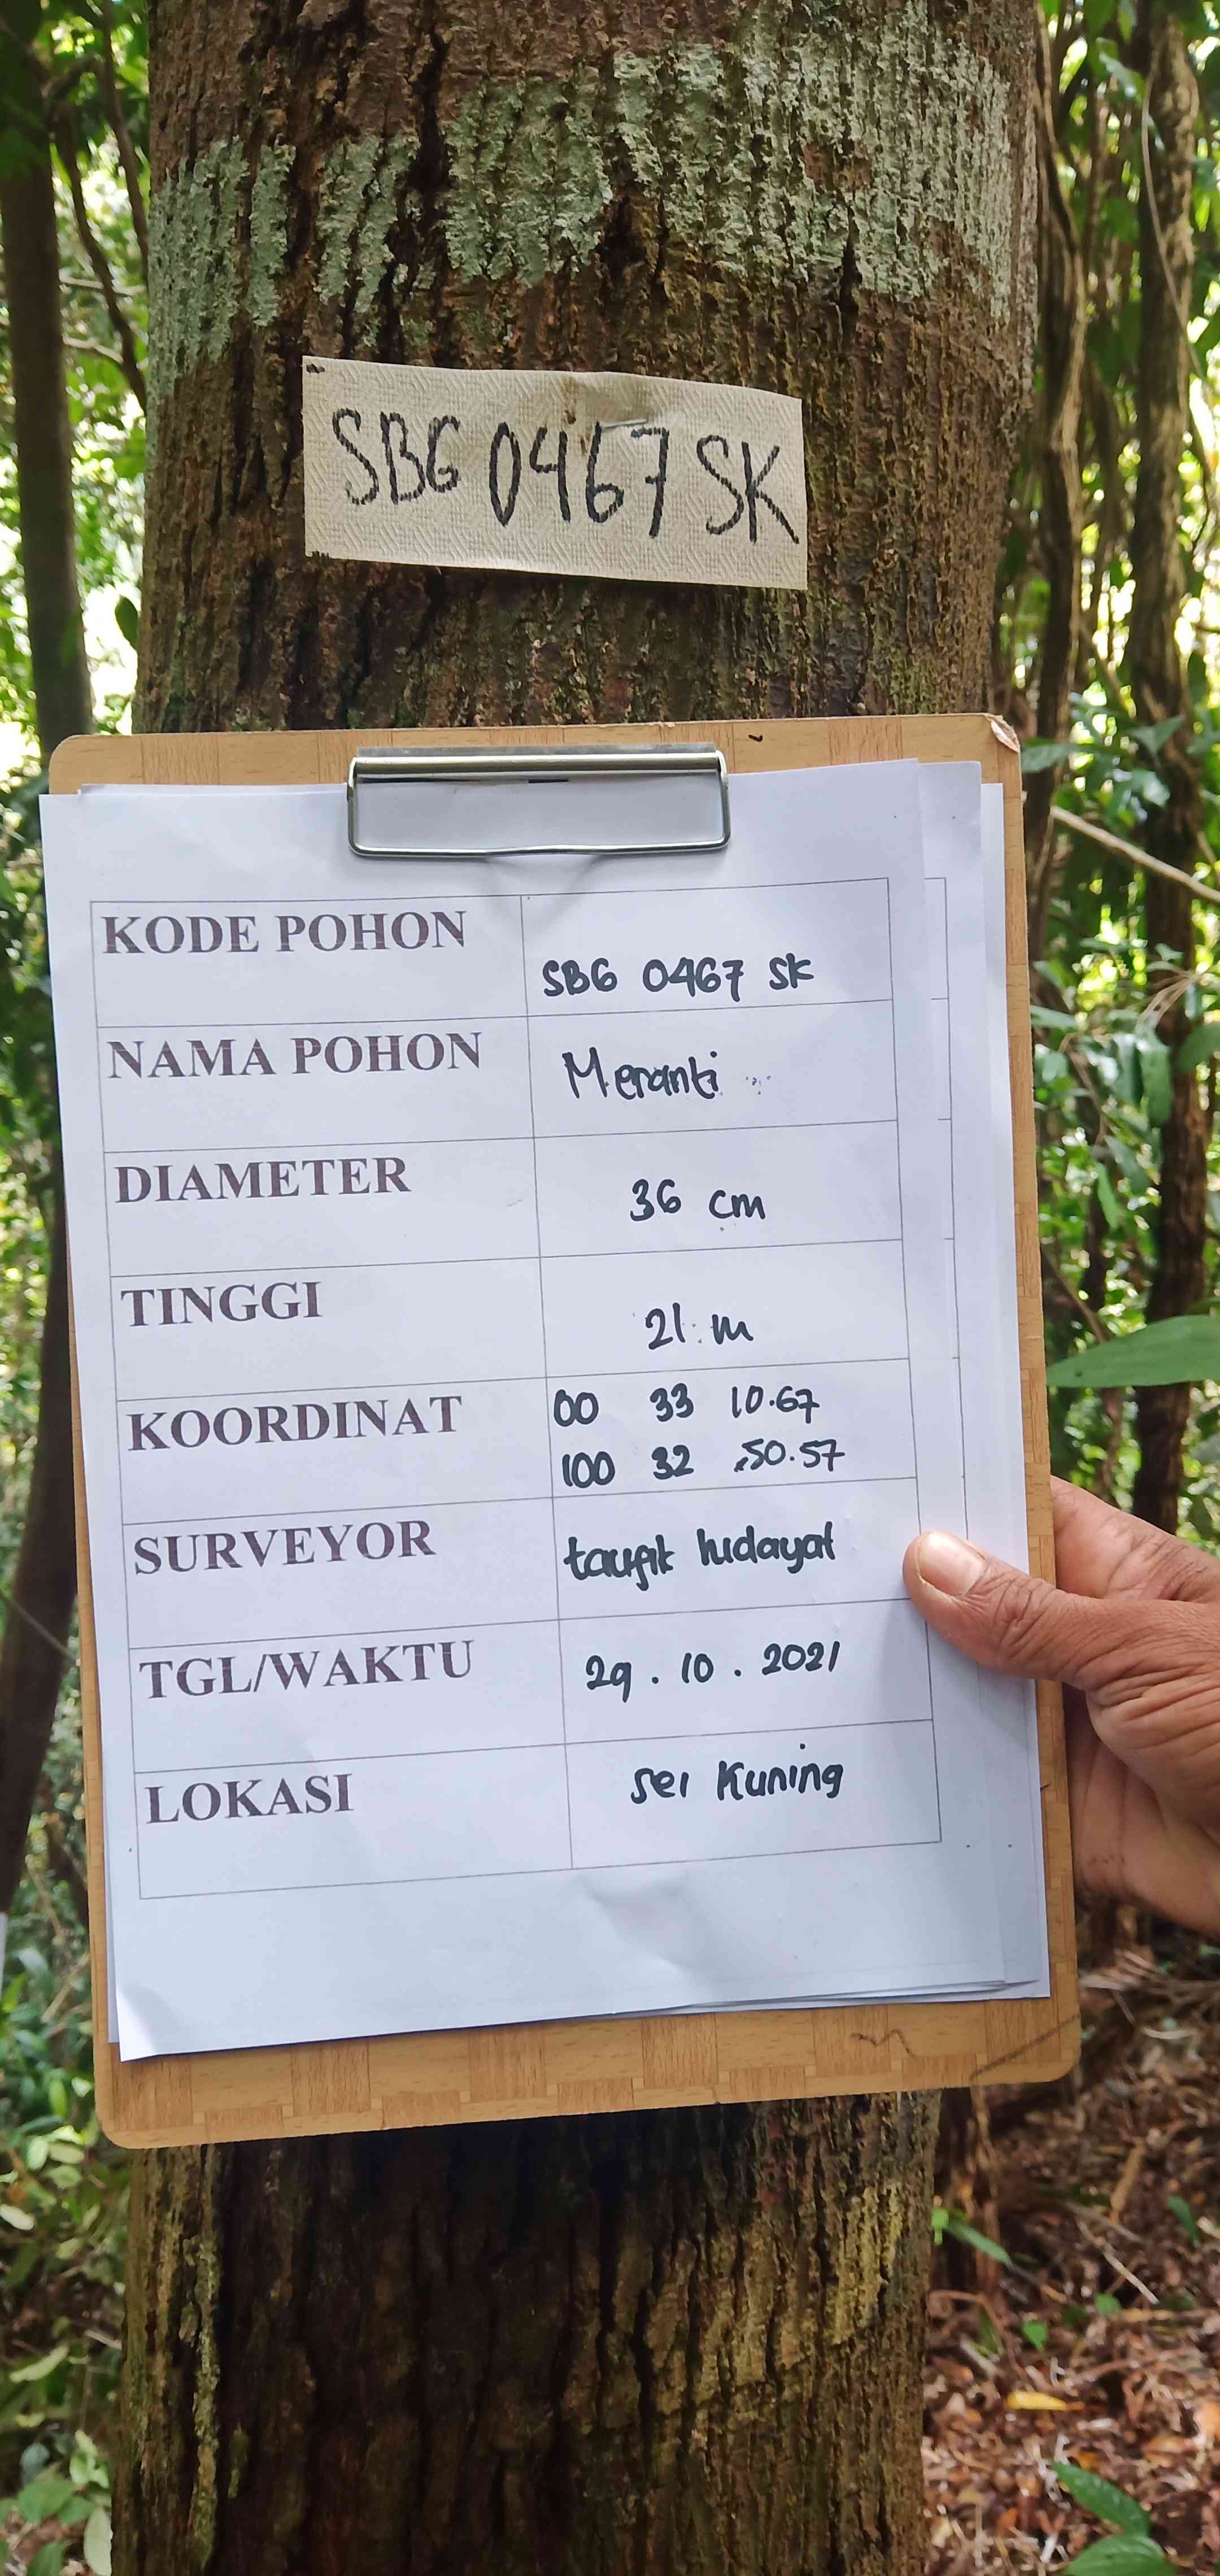 SBG 0467 SK
KODE POHON
SBG 0467 SK
NAMA POHON
Meranti
DIAMETER
36 cm
TINGGI
21 m
KOORDINAT
00 33 10.67
100 32 50.57
SURVEYOR
taufik hidayat
TGL/WAKTU
29.10.2021
LOKASI
sei Kuning